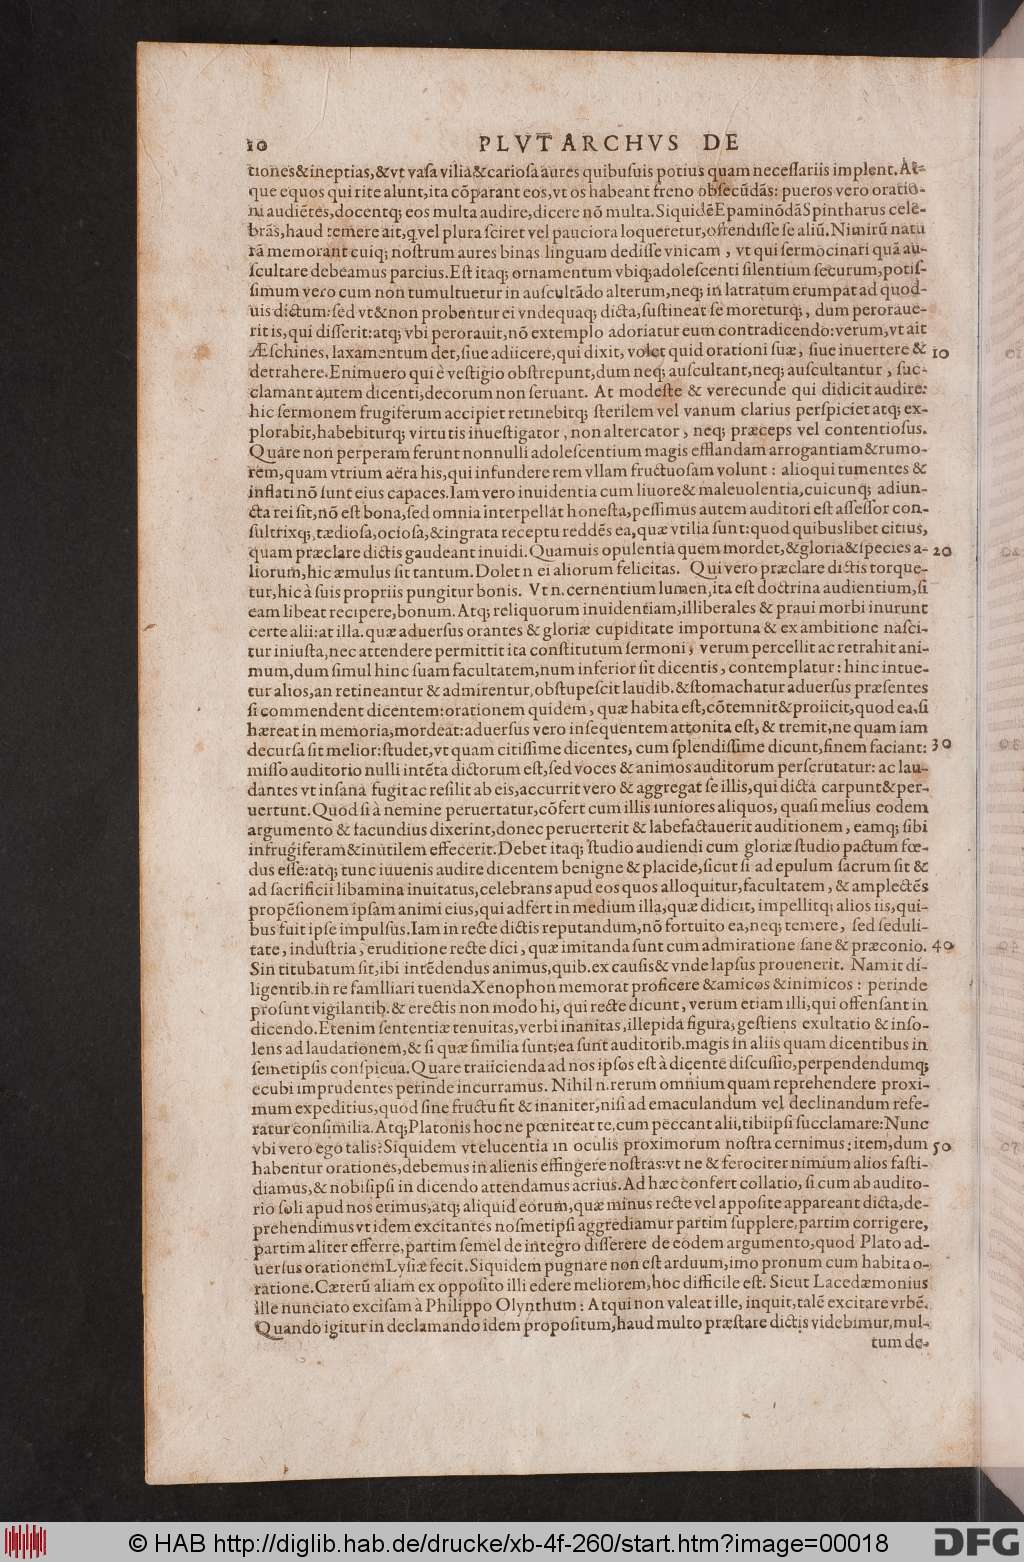 10 PLVTARCHVS DE
tiones&ineptias,&vt vasa vilia&cariosa aures quibusuis potius quam necessariis implent. At-
que equos qui rite alunt,ita cõparant eos,vt os habeant freno obsecũdãs: pueros vero oratio-
ni audiẽtes,docentq; eos multa audire,dicere nõ multa. SiquidẽEpaminõdãSpintharus cele-
brãs,haud temere ait,q vel plura sciret vel pauciora loqueretur,ostendisse se aliũ. Nimirũ natu
rã memorant cuiq; nostrum aures binas linguam dedisse vnicam, vt qui sermocinari quã au-
scultare debeamus parcius. Est itaq; ornamentum vbiq;adolescenti silentium securum,potis-
simum vero cum non tumultuetur in auscultãdo alterum,neq; in latratum erumpat ad quod-
uis dictum:sed vt&non probentur ei vndequaq; dicta,sustineat se moreturq;, dum peroraue-
rit is,qui disserit:atq; vbi perorauit,nõ extemplo adoriatur eum contradicendo:verum,vt ait
Æschines, laxamentum det,siue adiicere,qui dixit, volet quid orationi suæ, siue inuertere & 10
detrahere. Enimuero qui è vestigio obstrepunt,dum neq; auscultant,neq; auscultantur, suc-
clamant autem dicenti,decorum non seruant. At modeste & verecunde qui didicit audire:
hic sermonem frugiferum accipiet retinebitq; sterilem vel vanum clarius perspiciet atq; ex-
plorabit,habebiturq; virtutis inuestigator, non altercator, neq; præceps vel contentiosus.
Quare non perperam ferunt nonnulli adolescentium magis efflandam arrogantiam&rumo-
rem,quam vtrium aëra his,qui infundere rem vllam fructuosam volunt: alioqui tumentes &
inflati nõ sunt eius capaces. Iam vero inuidentia cum liuore& maleuolentia,cuicunq; adiun-
cta rei sit,nõ est bona,sed omnia interpellat honesta,pessimus autem auditori est assessor con-
sultrixq;,tædiosa,ociosa,&ingrata receptu reddẽs ea,quæ vtilia sunt:quod quibuslibet citius,
quam præclare dictis gaudeant inuidi. Quamuis opulentia quem mordet,&gloria&species a- 20
liorum,hic æmulus sit tantum. Dolet n ei aliorum felicitas. Qui vero præclare dictis torque-
tur,hic à suis propriis pungitur bonis. Vt n. cernentium lumen,ita est doctrina audientium,si
eam libeat recipere,bonum. Atq; reliquorum inuidentiam,illiberales & praui morbi inurunt
certe alii:at illa.quæ aduersus orantes & gloriæ cupiditate importuna & ex ambitione nasci-
tur iniusta,nec attendere permittit ita constitutum sermoni, verum percellit ac retrahit ani-
mum,dum simul hinc suam facultatem,num inferior sit dicentis, contemplatur: hinc intue-
tur alios,an retineantur & admirentur,obstupescit laudib.&stomachatur aduersus præsentes
si commendent dicentem:orationem quidem, quæ habita est,cõtemnit&proiicit,quod ea,si
hæreat in memoria,mordeat:aduersus vero insequentem attonita est, & tremit,ne quam iam
decursa sit melior:studet,vt quam citissime dicentes, cum splendissime dicunt,finem faciant: 30
misso auditorio nulli intẽta dictorum est,sed voces & animos auditorum perscrutatur: ac lau-
dantes vt insana fugit ac resilit ab eis,accurrit vero & aggregat se illis,qui dicta carpunt&per-
uertunt. Quod si à nemine peruertatur,cõfert cum illis iuniores aliquos, quasi melius eodem
argumento & facundius dixerint,donec peruerterit & labefactauerit auditionem, eamq; sibi
infrugiferam&inutilem effecerit. Debet itaq; studio audiendi cum gloriæ studio pactum fœ-
dus esse:atq; tunc iuuenis audire dicentem benigne & placide,sicut si ad epulum sacrum sit &
ad sacrificii libamina inuitatus,celebrans apud eos quos alloquitur,facultatem, & amplectẽs
propẽsionem ipsam animi eius,qui adfert in medium illa,quæ didicit, impellitq; alios iis,qui-
bus fuit ipse impulsus. Iam in recte dictis reputandum,nõ fortuito ea,neq; temere, sed seduli-
tate, industria, eruditione recte dici, quæ imitanda sunt cum admiratione sane & præconio. 40
Sin titubatum sit,ibi intẽdendus animus,quib.ex causis& vnde lapsus prouenerit. Nam it di-
ligentib.in re familiari tuenda Xenophon memorat proficere &amicos &inimicos: perinde
prosunt vigilantib.& erectis non modo hi, qui recte dicunt, verum etiam illi,qui offensant in
dicendo. Etenim sententiæ tenuitas,verbi inanitas,illepida figura,gestiens exultatio & inso-
lens ad laudationem,& si quæ similia sunt;ea sunt auditorib.magis in aliis quam dicentibus in
semetipsis conspicua. Quare traiicienda ad nos ipsos est à dicente discussio,perpendendumq;
ecubi imprudentes perinde incurramus. Nihil n.rerum omnium quam reprehendere proxi-
mum expeditius,quod sine fructu fit & inaniter,nisi ad emaculandum vel declinandum refe-
ratur consimilia. Atq;Platonis hoc ne pœniteat te,cum peccant alii,tibiipsi succlamare:Nunc
vbi vero ego talis? Siquidem vt elucentia in oculis proximorum nostra cernimus: item,dum 50
habentur orationes,debemus in alienis effingere nostras:vt ne & ferociter nimium alios fasti-
diamus,& nobisipsi in dicendo attendamus acrius. Ad hæc confert collatio, si cum ab audito-
rio soli apud nos erimus,atq; aliquid eorum,quæ minus recte vel apposite appareant dicta,de-
prehendimus vt idem excitantes nosmetipsi aggrediamur partim supplere,partim corrigere,
partim aliter efferre,partim semel de integro disserere de eodem argumento,quod Plato ad-
uersus orationem Lysiæ fecit. Siquidem pugnare non est arduum,imo pronum cum habita o-
ratione. Cæterũ aliam ex opposito illi edere meliorem,hoc difficile est. Sicut Lacedæmonius
ille nunciato excisam à Philippo Olynthum: Atqui non valeat ille, inquit,talẽ excitare vrbẽ.
Quando igitur in declamando idem propositum,haud multo præstare dictis videbimur,mul-
tum de-
© HAB http://diglib.hab.de/drucke/xb-4f-260/start.htm?image=00018 DFG